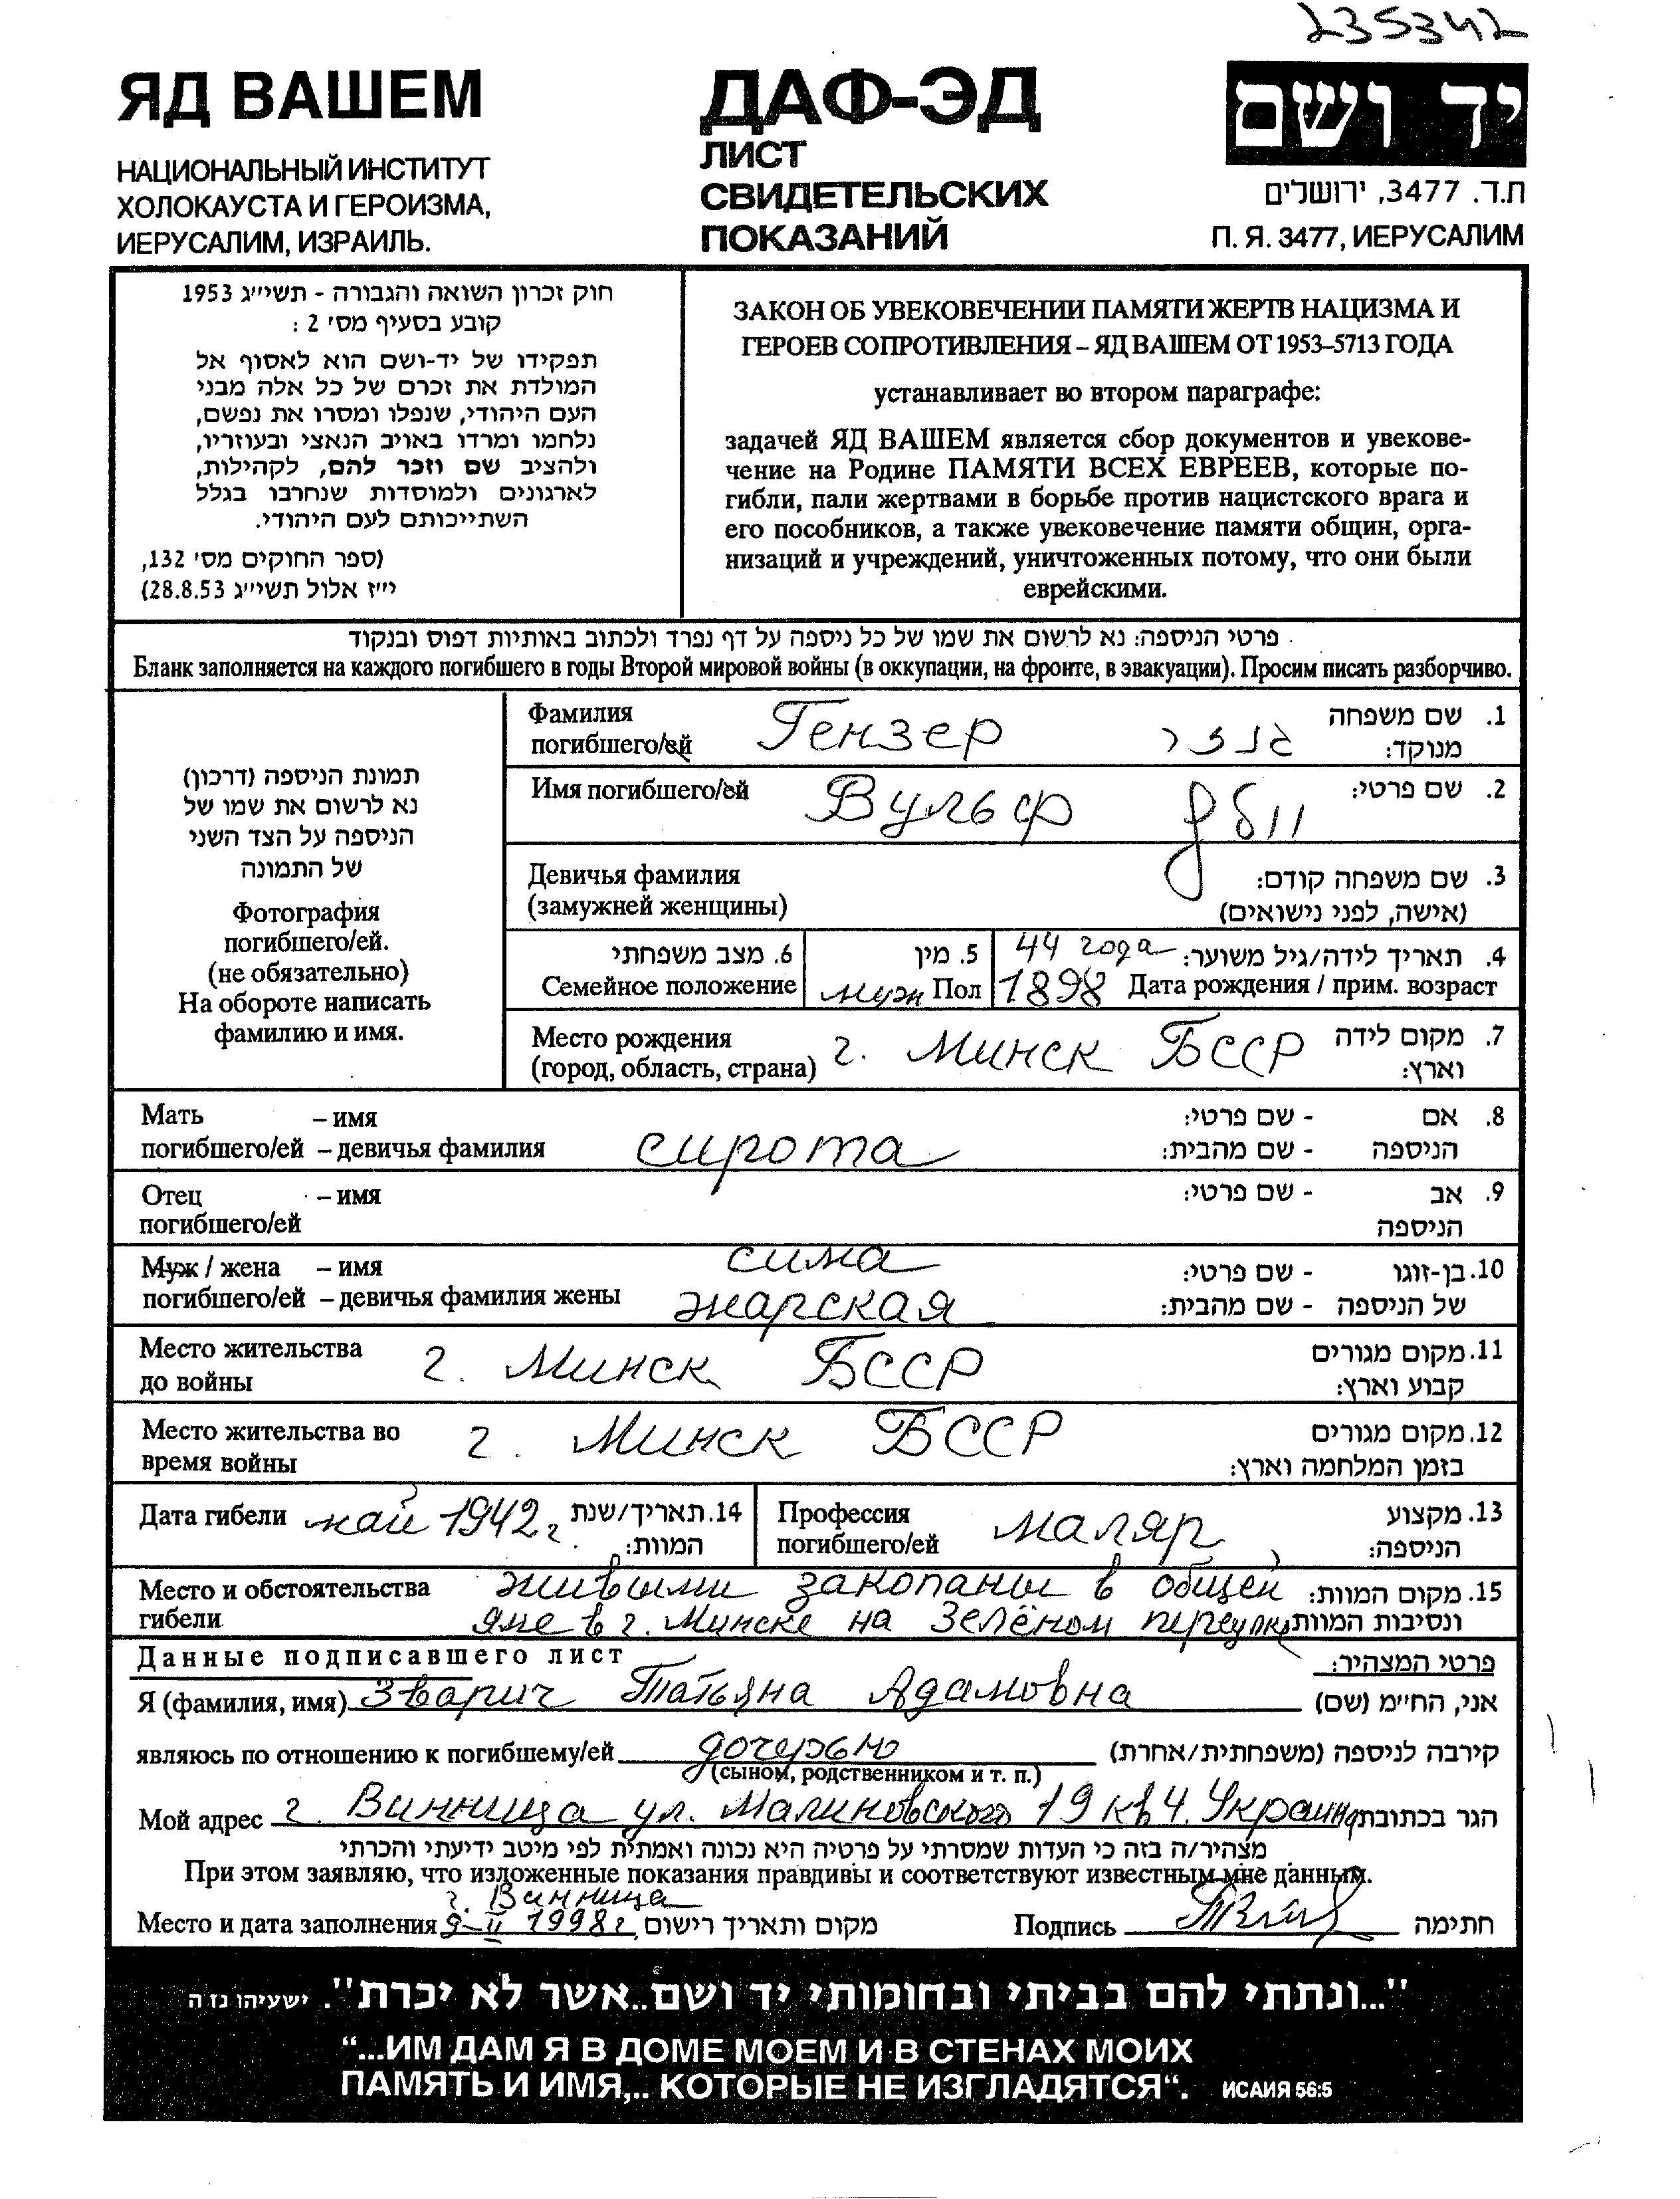 235342
ЯД ВАШЕМ
НАЦИОНАЛЬНЫЙ ИНСТИТУТ
ХОЛОКАУСТА И ГЕРОИЗМА,
ИЕРУСАЛИМ, ИЗРАИЛЬ.
ДАФ-ЭД
ЛИСТ
СВИДЕТЕЛЬСКИХ
ПОКАЗАНИЙ
יד ושם
ת.ד. 3477, ירושלים
П. Я. 3477, ИЕРУСАЛИМ
חוק זכרון השואה והגבורה - תשי״ג 1953
קובע בסעיף מס׳ 2 :
תפקידו של יד-ושם הוא לאסוף אל
המולדת את זכרם של כל אלה מבני
העם היהודי, שנפלו ומסרו את נפשם,
נלחמו ומרדו באויב הנאצי ובעוזריו,
ולהציב שם וזכר להם, לקהילות,
לארגונים ולמוסדות שנחרבו בגלל
השתייכותם לעם היהודי.
(ספר החוקים מס׳ 132,
י״ז אלול תשי״ג 28.8.53)
ЗАКОН ОБ УВЕКОВЕЧЕНИИ ПАМЯТИ ЖЕРТВ НАЦИЗМА И
ГЕРОЕВ СОПРОТИВЛЕНИЯ – ЯД ВАШЕМ ОТ 1953–5713 ГОДА
устанавливает во втором параграфе:
задачей ЯД ВАШЕМ является сбор документов и увекове-
чение на Родине ПАМЯТИ ВСЕХ ЕВРЕЕВ, которые по-
гибли, пали жертвами в борьбе против нацистского врага и
его пособников, а также увековечение памяти общин, орга-
низаций и учреждений, уничтоженных потому, что они были
еврейскими.
פרטי הניספה: נא לרשום את שמו של כל ניספה על דף נפרד ולכתוב באותיות דפוס ובנקוד
Бланк заполняется на каждого погибшего в годы Второй мировой войны (в оккупации, на фронте, в эвакуации). Просим писать разборчиво.
תמונת הניספה (דרכון)
נא לרשום את שמו של
הניספה על הצד השני
של התמונה
Фотография
погибшего/ей.
(не обязательно)
На обороте написать
фамилию и имя.
Фамилия Гензер גנזר 1. שם משפחה
погибшего/ей מנוקד:
Имя погибшего/ей Вульф וולף 2. שם פרטי:
Девичья фамилия 3. שם משפחה קודם:
(замужней женщины) (אישה, לפני נישואים)
6. מצב משפחתי 5. מין 44 года 4. תאריך לידה/גיל משוער:
Семейное положение муж Пол 1898 Дата рождения / прим. возраст
Место рождения г. Минск БССР 7. מקום לידה
(город, область, страна) וארץ:
Мать – имя 8. אם - שם פרטי:
погибшего/ей – девичья фамилия сирота הניספה - שם מהבית:
Отец – имя 9. אב - שם פרטי:
погибшего/ей הניספה
Муж / жена – имя сима 10. בן-זוגו - שם פרטי:
погибшего/ей – девичья фамилия жены жарская של הניספה - שם מהבית:
Место жительства г. Минск БССР 11. מקום מגורים
до войны קבוע וארץ:
Место жительства во г. Минск БССР 12. מקום מגורים
время войны בזמן המלחמה וארץ:
Дата гибели май 1942 г 14. תאריך/שנת
המוות:
Профессия маляр 13. מקצוע
погибшего/ей הניספה:
Место и обстоятельства живыми закопаны в общей 15. מקום המוות:
гибели яме в г. Минске на Зелёном переулке ונסיבות המוות
Данные подписавшего лист פרטי המצהיר:
Я (фамилия, имя) Зварич Татьяна Адамовна אני, הח״מ (שם)
являюсь по отношению к погибшему/ей дочерью קירבה לניספה (משפחתית/אחרת)
(сыном, родственником и т. п.)
Мой адрес г. Винница ул. Малиновского 19 кв 4. Украина הגר בכתובת
מצהיר/ה בזה כי העדות שמסרתי על פרטיה היא נכונה ואמתית לפי מיטב ידיעתי והכרתי.
При этом заявляю, что изложенные показания правдивы и соответствуют известным мне данным.
г. Винница
Место и дата заполнения 9-II 1998 г מקום ותאריך רישום Подпись חתימה
"...ונתתי להם בביתי ובחומותי יד ושם..אשר לא יכרת". ישעיהו נז ה
“...ИМ ДАМ Я В ДОМЕ МОЕМ И В СТЕНАХ МОИХ
ПАМЯТЬ И ИМЯ,.. КОТОРЫЕ НЕ ИЗГЛАДЯТСЯ“. ИСАИЯ 56:5